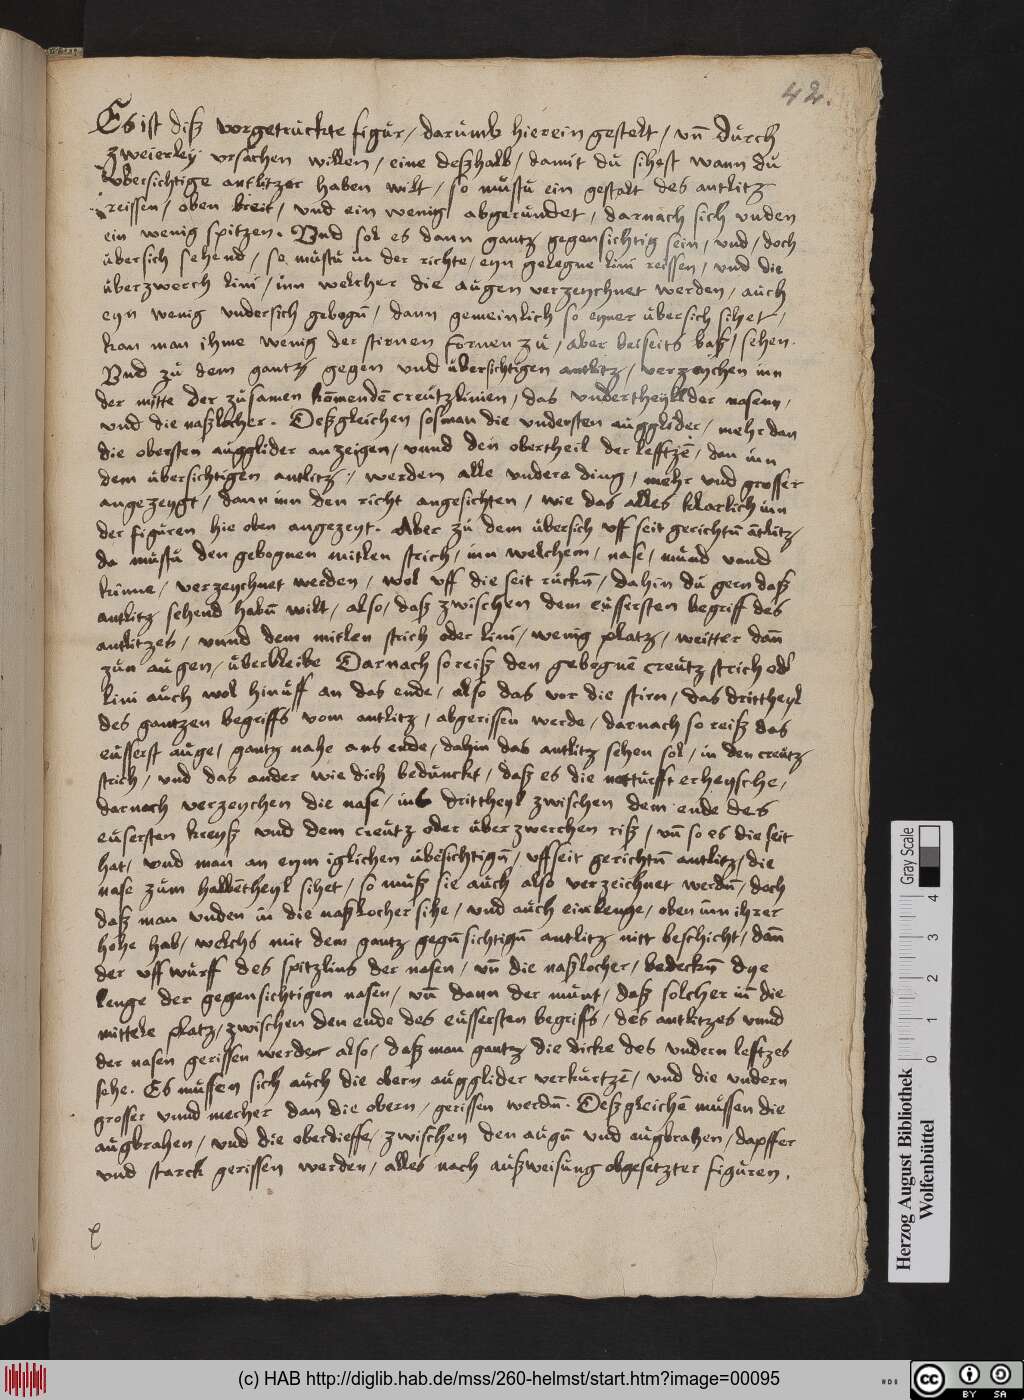 42.
Es ist diß vorgetruckte figur / darumb hierein gestelt / vn̄ durch
zweierley vrsachen willen / eine deßhalb / damit du sihest wann du
vbersichtige antlitzer haben wilt / so mustu ein gestalt des antlitz
reissen / oben breit / vnd ein wenig abgerundet / darnach sich vnden
ein wenig spitzen. Vnd sol es dann gantz gegensichtig sein / vnd / doch
übersich sehend / so mustu in der richte / eyn gelegne lini reissen / vnd die
überzwerch lini / inn welcher die augen verzeychnet werden / auch
eyn wenig vndersich gebogn̄ / dann gemeinlich so eyner übersich sihet /
kan man ihme wenig der stirnen fornen zu / aber beiseits baß / sehen.
Vnd zu dem gantz gegen vnd übersichtigen antlitz / verzeychen inn
der mitte der zusamen kōmendē creutzlinien / das vndertheyll der nasenn /
vnd die naßlöcher. Deßgleichen sol man die vndersten augglider / mehr dan
die obersten augglider anzeigen / vnnd den obertheil der lefftzē / dan inn
dem übersichtigen antlitz / werden alle vndere ding / mehr vnd grosser
angezeygt / dann inn den richt angesichten / wie das alles klarlich inn
der figuren hie oben angezeyt. Aber zu dem übersich vff seit gerichtn̄ ātlitz
da mustu den gebognen mitlen strich / inn welchem / nase / mund vnnd
kinne / verzeychnet werden / wol vff die seit ruckn̄ / dahin du gern daß
antlitz sehend habn̄ wilt / also / daß zwischen dem eussersten begriff des
antlitzes / vnnd dem mitlen strich oder lini / wenig platz / weitter dan̄
zun augen / überbleibe Darnach so reiß den gebognē creutz strich odr
lini auch wol hinuff an das ende / also das vor die stirn / das drittheyl
des gantzen begriffs vom antlitz / abgerissen werde / darnach so reiß das
eusserst auge / gantz nahe ans ende / dahin das antlitz sehen sol / in den creutz
strich / vnd das ander wie dich beduncket / daß es die notturfft erheysche /
darnach verzeychen die nase / ins drittheyl zwischen dem ende des
eusersten kreyß vnd dem creutz oder überzwerchen riß / vn̄ so es die seit
hat / vnd man an eym iglichen übersichtign̄ / vffseit gerichtn̄ antlitz / die
nase zum halbentheyl sihet / so muß sie auch also verzeichnet werdn̄ / doch
daß man vnden in die naßlocher sihe / vnd auch ein lenge / oben inn ihrer
hohe hab / welchs mit dem gantz gegn̄sichtign̄ antlitz nitt beschicht / dan̄
der vffwurff des spitzlins der nasen / vn̄ die naßlocher / bedeckn̄ dye
lenge der gegensichtigen nasen / vn̄ dann der munt / daß solcher in̄ die
mittele platz / zwischen den ende des eussersten begriffs / des antlitzes vnnd
der nasen gerissen werder also / daß man gantz die dicke des vndern lefftzes
sehe. Es mussen sich auch die obern augglider verkurtzē / vnd die vndern
grosser vnnd mecher dan die obern / gerissen werdn̄. Deßgleichē mussen die
augbrahen / vnd die oberdieffe / zwischen den augn̄ vnd augbrahen / dapffer
vnd starck gerissen werden / alles nach außweisung obgesetzter figuren.
Herzog August Bibliothek
Wolfenbüttel
Gray Scale
0 1 2 3 4
(c) HAB http://diglib.hab.de/mss/260-helmst/start.htm?image=00095
HDB
cc BY SA